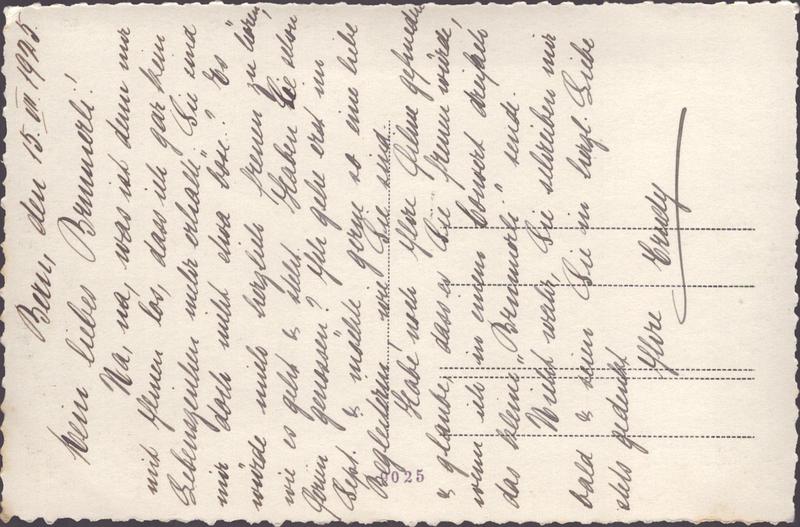 Bern, den 15. VII 1925
Mein liebes Brummerli!
Na, na, was ist denn mit
mit Ihnen los, dass ich gar kein
Lebenszeichen mehr erhalte. Sie sind
mir doch nicht etwa böse? Es
würde mich herzlich freuen zu hören,
wie es geht & steht. Haben Sie schon
Ferien genossen? Ich gehe erst im
Sept. & möchte gerne so eine liebe
Begleiterin wie Sie sind.
Habe noch Ihre Filme gefunden
& glaube, dass es Sie freuen würde,
wenn ich in einem Couvert
das kleine "Brummerli" sende.
Nicht wahr, Sie schreiben mir
bald & seien Sie in herzl. Liebe
stets gedenkt
Ihre Trudy
0025